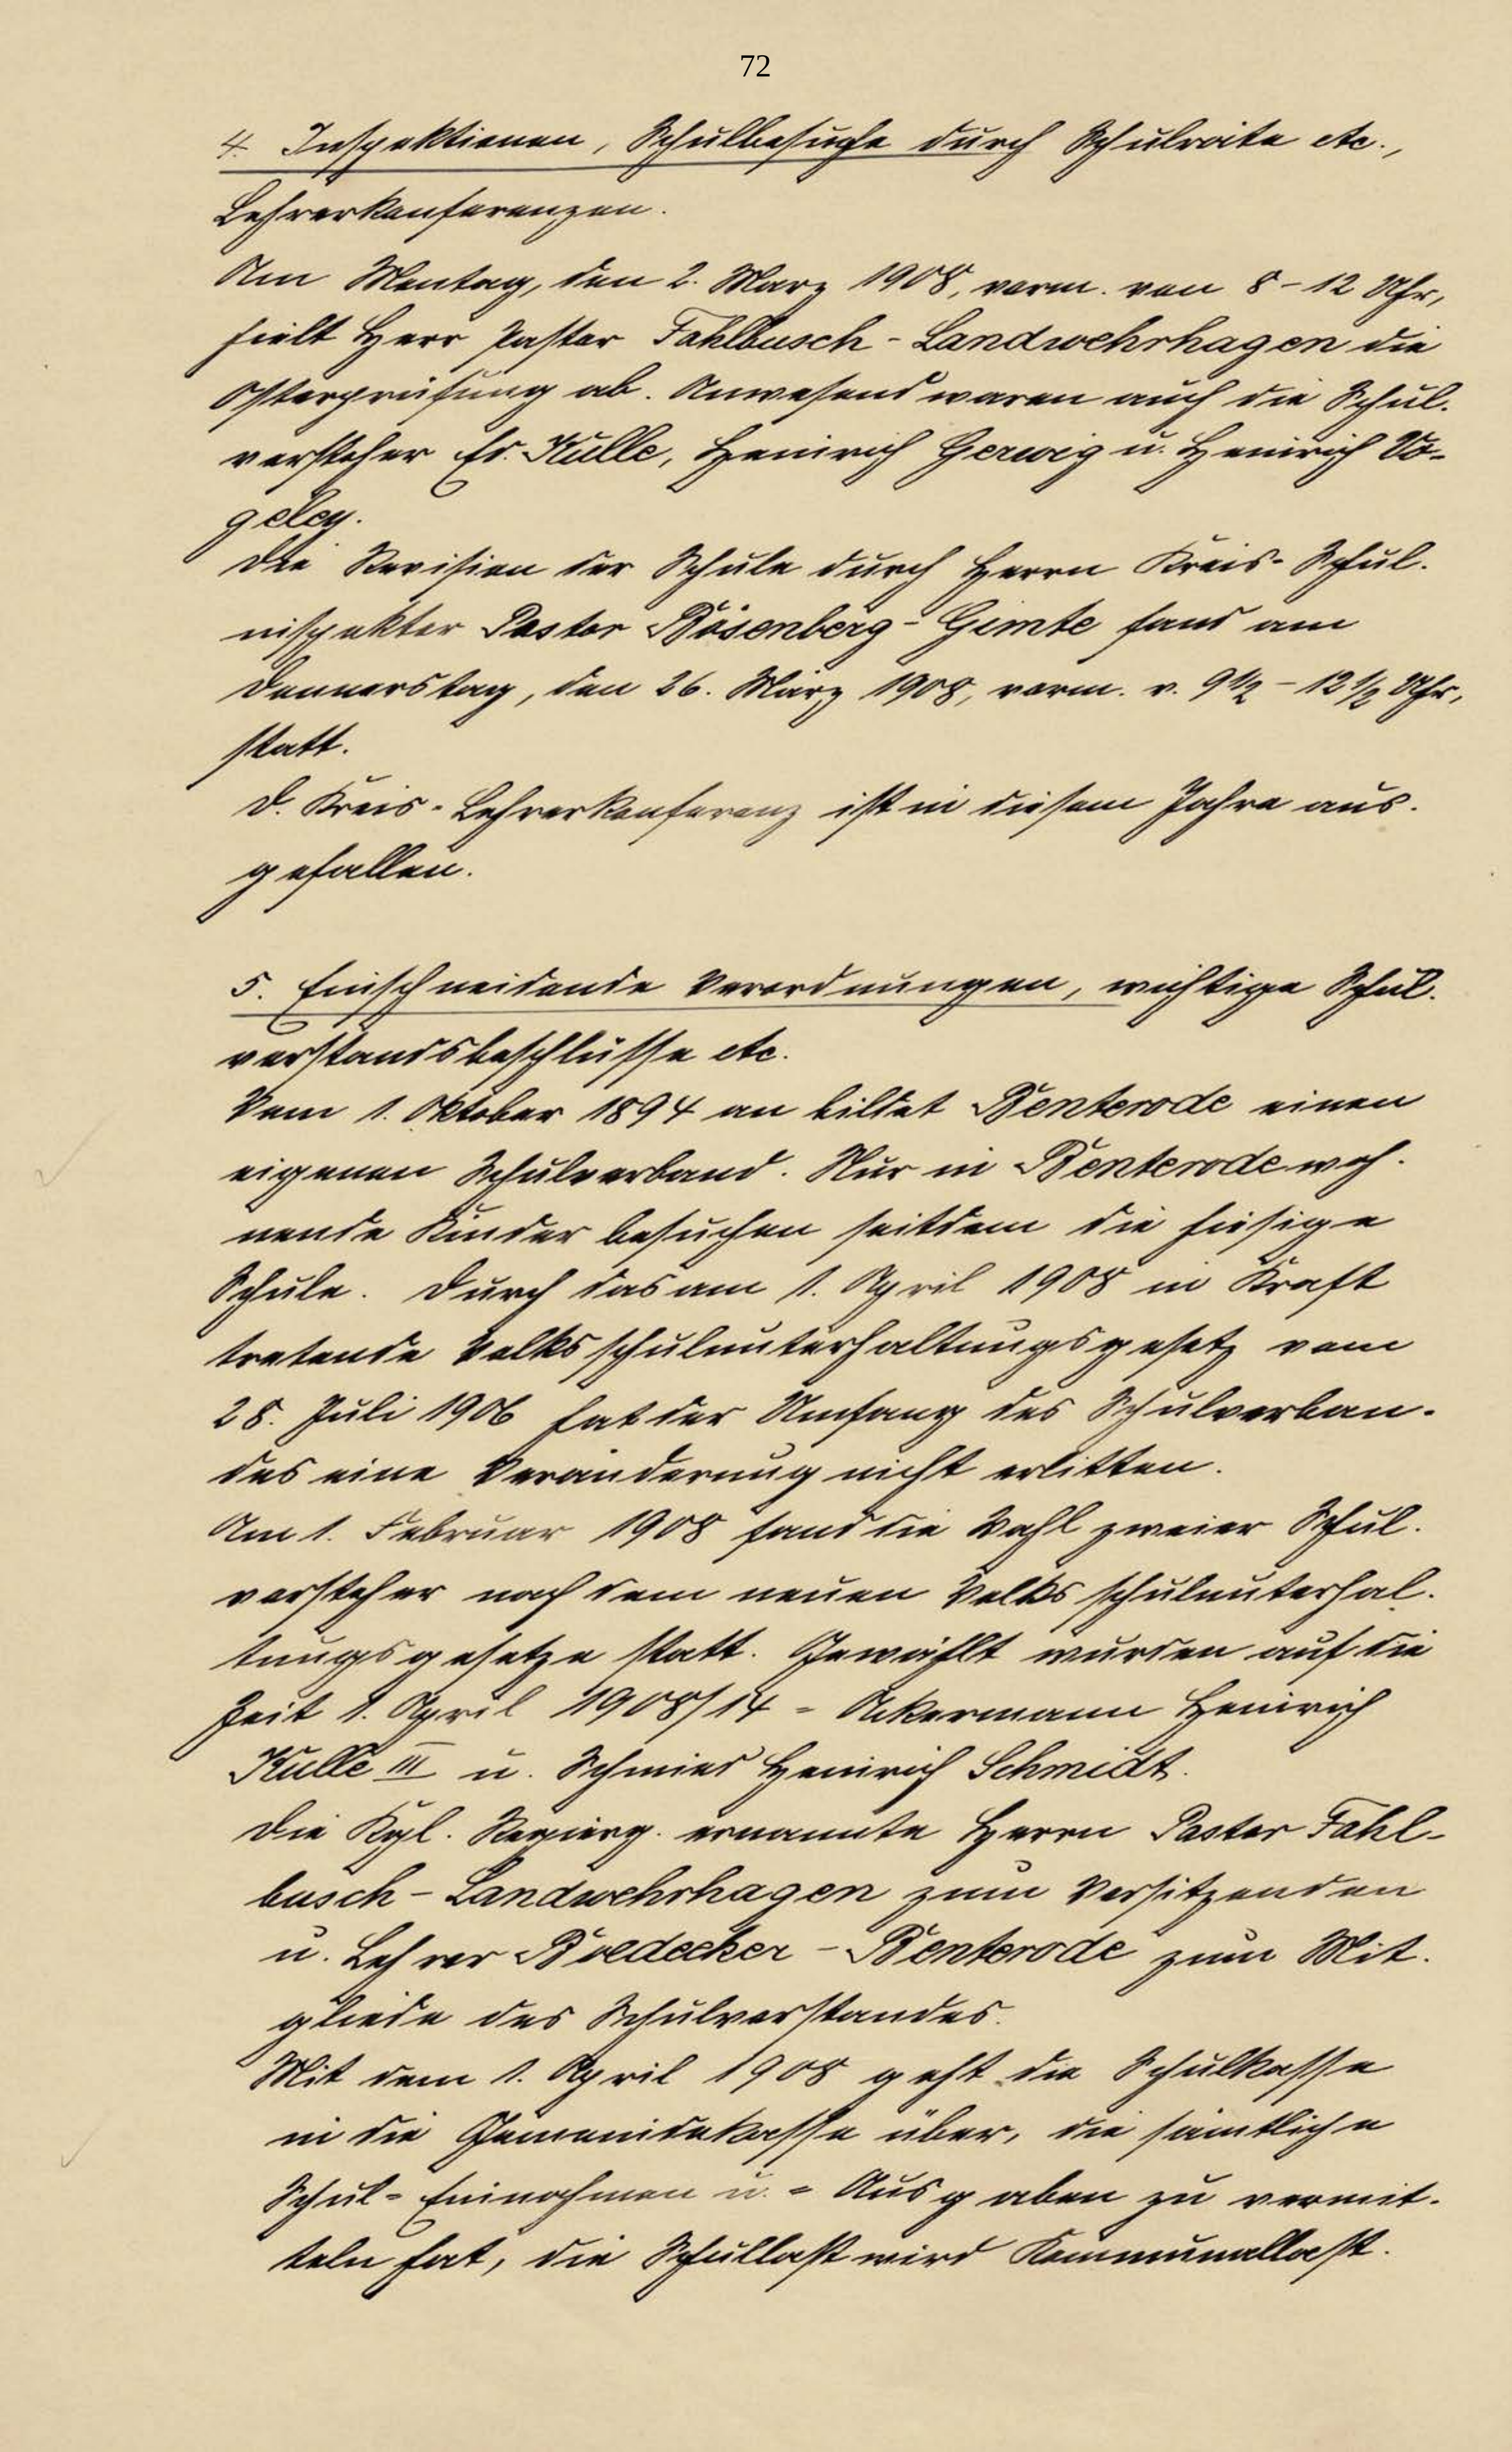 72
4. Inspektionen, Schulbesuche durch Schulräte etc.,
Lehrerkonferenzen.
Am Montag, den 2. März 1908, vorm. von 8-12 Uhr,
hielt Herr Pastor Fahlbusch-Landwehrhagen die
Osterprüfung ab. Anwesend waren auch die Schul-
vorsteher Hr. Kulle, Heinrich Gerwig u. Heinrich Vo-
geley.
Die Revision der Schule durch Herrn Kreis-Schul-
inspektor Pastor Bösenberg-Gimte fand am
Donnerstag, den 26. März 1908, vorm. v. 9½-12½ Uhr,
statt.
D. Kreis-Lehrerkonferenz ist in diesem Jahre aus-
gefallen.
5. Einschneidende Verordnungen, wichtige Schul-
vorstandsbeschlüsse etc.
Vom 1. Oktober 1894 an bildet Benterode einen
eigenen Schulverband. Nur in Benterode woh-
nende Kinder besuchen seitdem die hiesige
Schule. Durch das am 1. April 1908 in Kraft
tretende Volksschulunterhaltungsgesetz vom
28. Juli 1906 hat der Umfang des Schulverban-
des eine Veränderung nicht erlitten.
Am 1. Februar 1908 fand die Wahl zweier Schul-
vorsteher nach dem neuen Volksschulunterhal-
tungsgesetze statt. Gewählt wurden auf die
Zeit 1. April 1908/14 - Ackermann Heinrich
Kulle III u. Schmied Heinrich Schmidt.
Die Kgl. Regierg. ernannte Herrn Pastor Fahl-
busch-Landwehrhagen zum Vorsitzenden
u. Lehrer Boedecker-Benterode zum Mit-
gliede des Schulvorstandes.
Mit dem 1. April 1908 geht die Schulkasse
in die Gemeindekasse über, die sämtliche
Schul-Einnahmen u. -Ausgaben zu vermit-
teln hat, die Schullast wird Kommunallast.